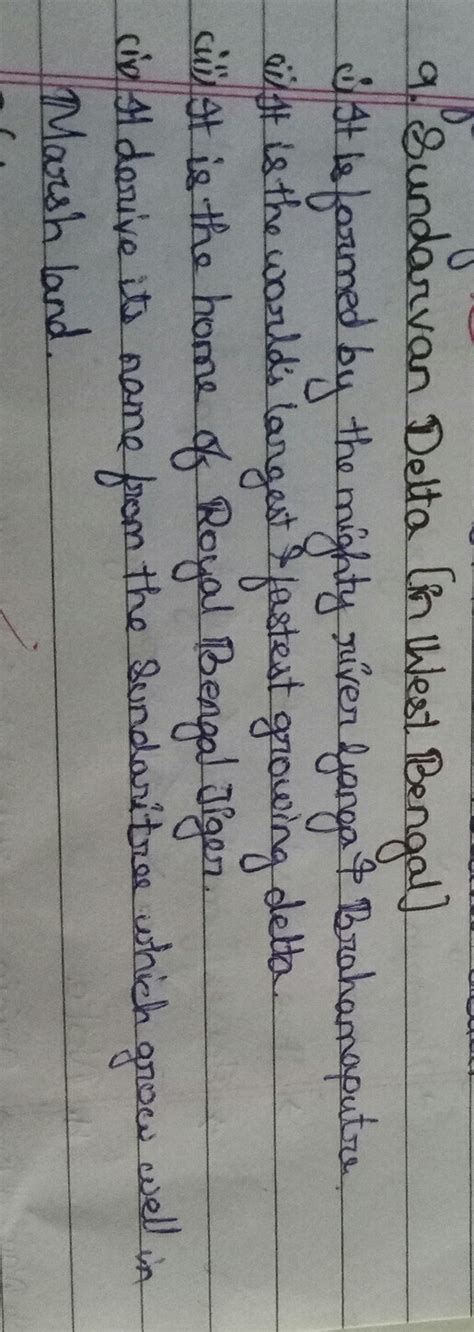 9. Sundarvan Delta [in West Bengal]
(i) It is formed by the mighty river Ganga & Brahamaputra.
(ii) It is the world's largest & fastest growing delta.
(iii) It is the home of Royal Bengal Tiger.
(iv) It derive its name from the Sundari tree which grow well in
Marsh land.